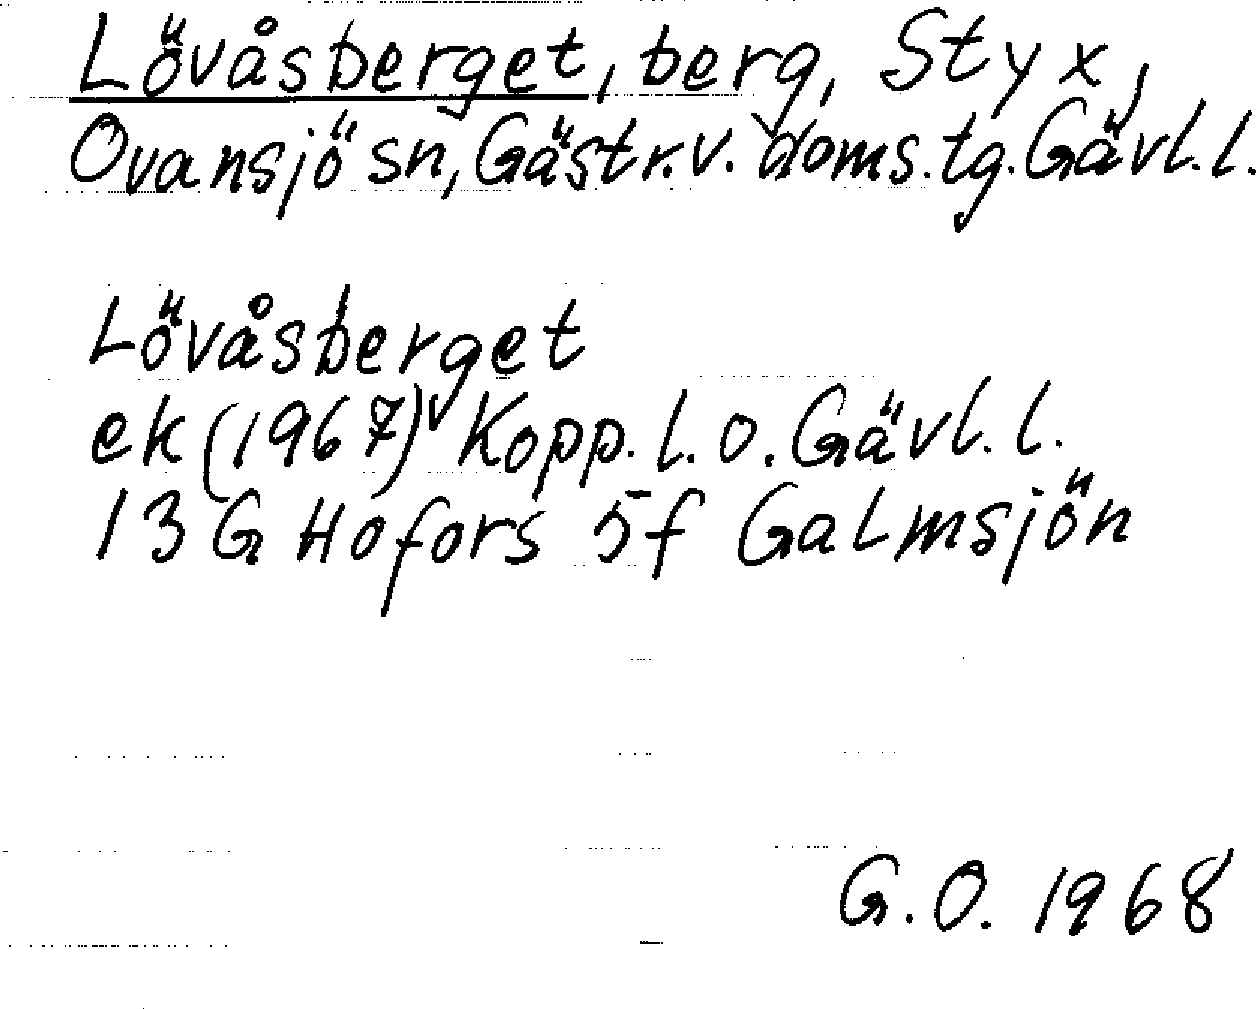 Lövåsberget, berg, Styx,
Ovansjö sn, Gästr.v. doms.tg. Gävl.l.
Lövåsberget
ek (1967) Kopp. l. o. Gävl. l.
13 G Hofors 5f Galmsjön
G.O. 1968